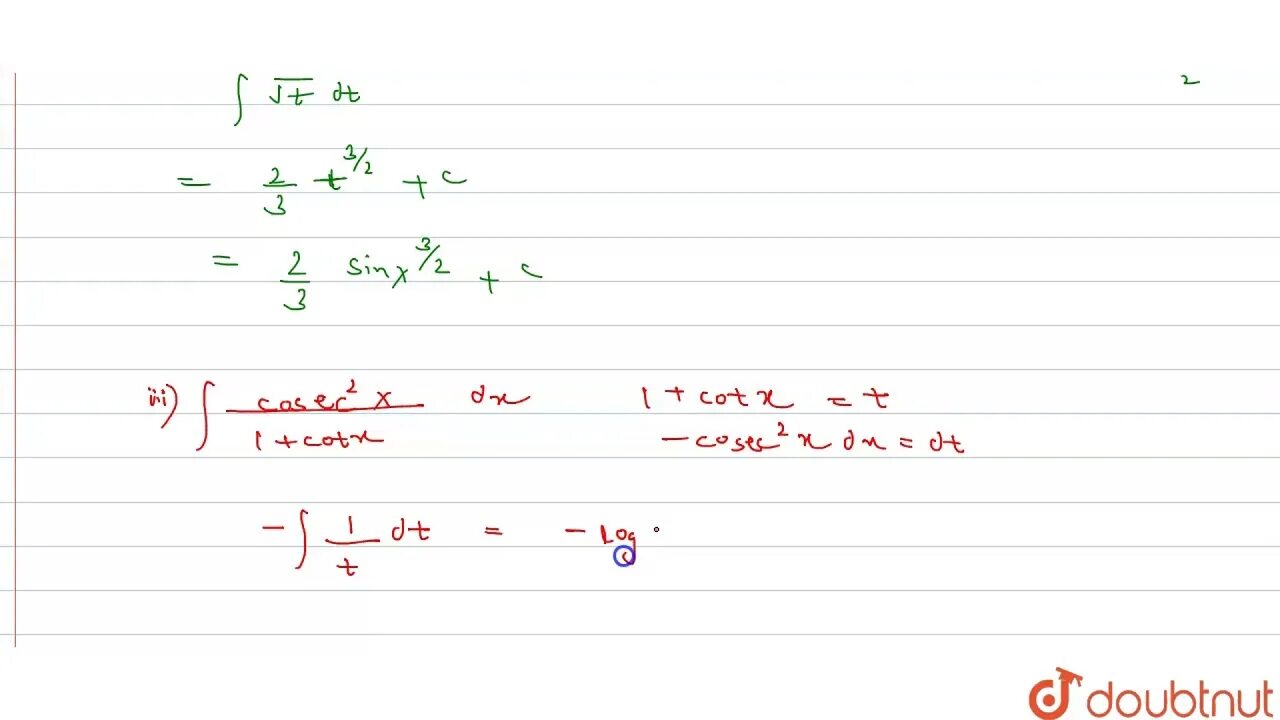 2
∫ √t dt
= 2/3 t^3/2 + c
= 2/3 sinx^3/2 + c
iii) ∫ cosec² x / 1 + cotx dx 1 + cotx = t
- cosec² x dx = dt
- ∫ 1/t dt = - log
doubtnut